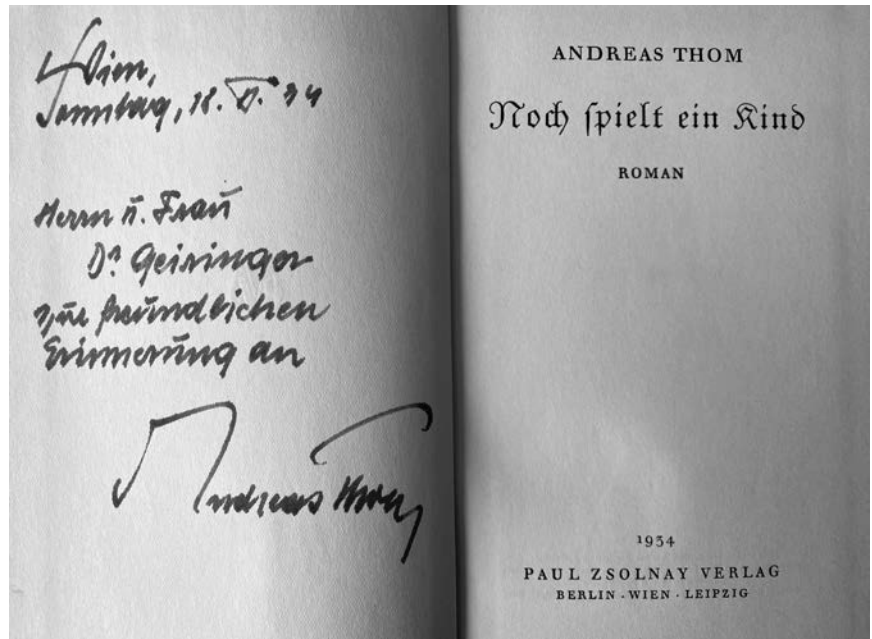 Wien,
Sonntag, 18. 34
Herrn u. Frau
Dr. Geiringer
zur freundlichen
Erinnerung an
Andreas Thom
ANDREAS THOM
Noch ſpielt ein Kind
ROMAN
1934
PAUL ZSOLNAY VERLAG
BERLIN · WIEN · LEIPZIG